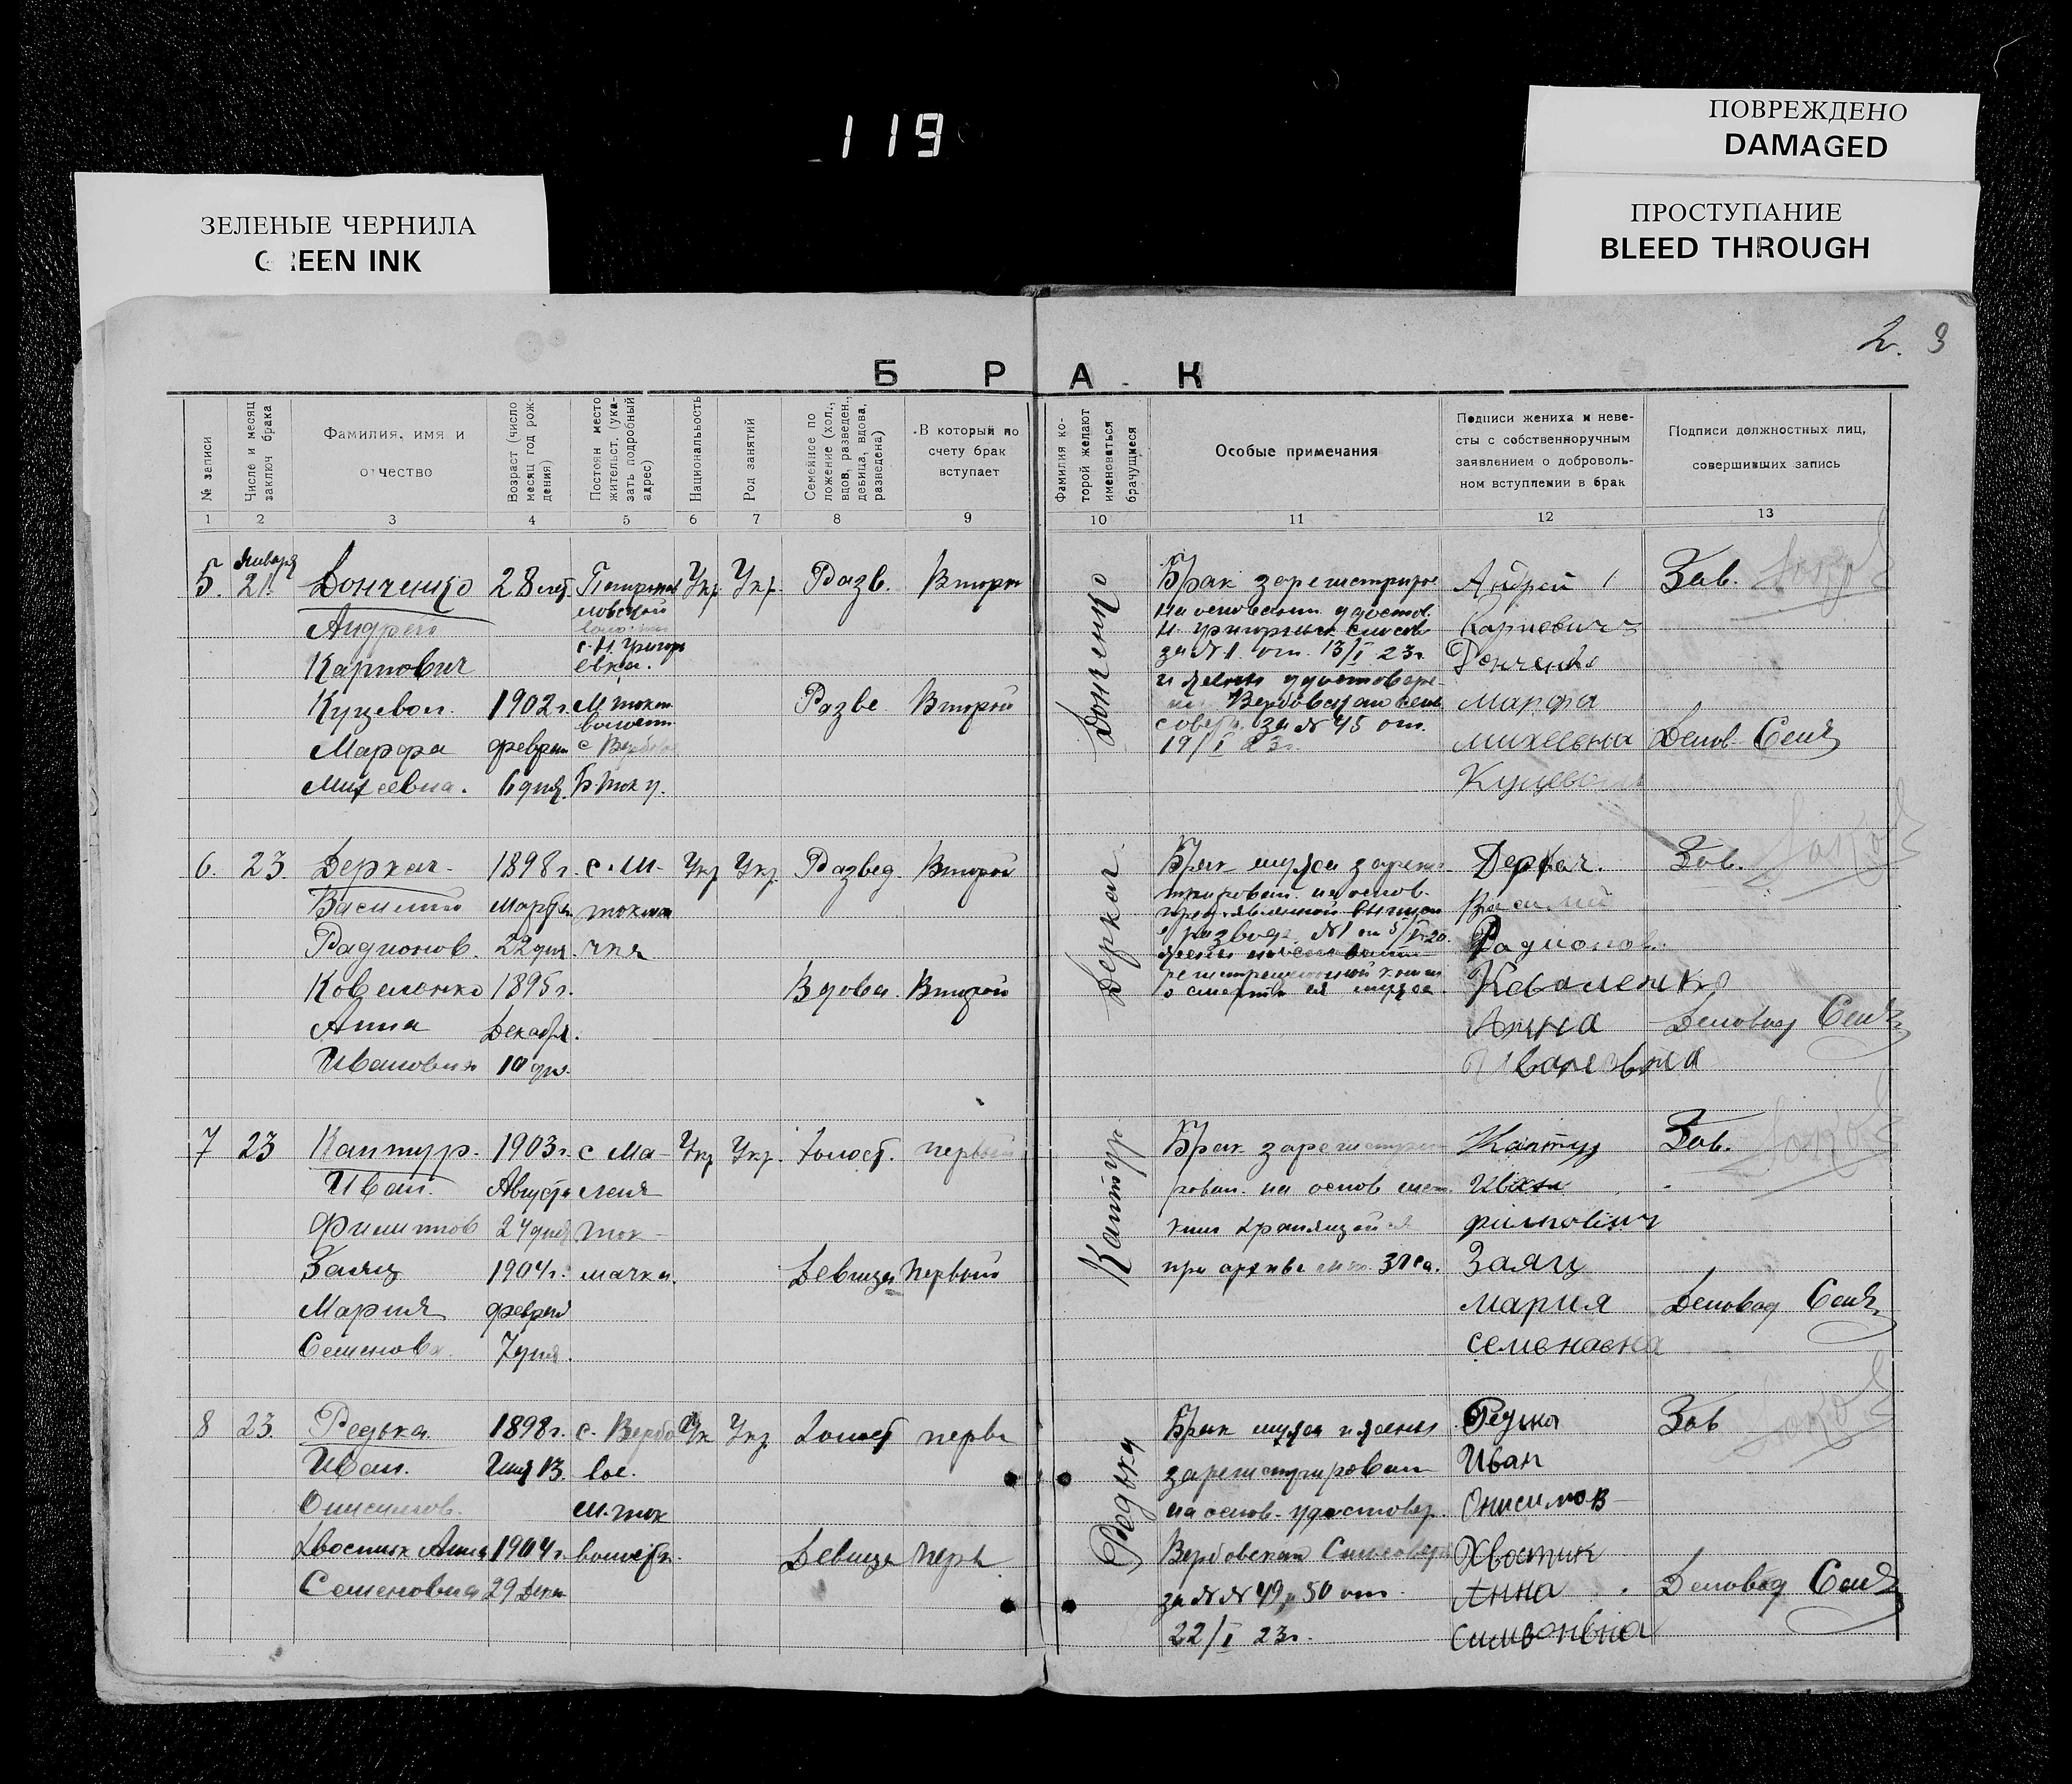 119
ПОВРЕЖДЕНО
DAMAGED
ПРОСТУПАНИЕ
BLEED THROUGH
ЗЕЛЕНЫЕ ЧЕРНИЛА
GREEN INK
2. 3
БРАК
№ записи
Число и месяц заключ брака
Фамилия, имя и отчество
Возраст (число месяц год рождения)
Постоян место жительст. (указать подробный адрес)
Национальность
Род занятий
Семейное положение (хол., вдов, разведен., девица, вдова, разведена)
В который по счету брак вступает
Фамилия которой желают именоваться брачущиеся
Особые примечания
Подписи жениха и невесты с собственноручным заявлением о добровольном вступлении в брак
Подписи должностных лиц, совершивших запись
1 2 3 4 5 6 7 8 9 10 11 12 13
5. Января 21. Донченко 28 лет. Укр Укр. Разв. Втор
Андрей
Карпович
с. Н. Григорьевка.
Куцевол. 1902 г. М токм Разве Второй
Марфа феврал с Вербово
Михеевна. 6 дня. Б Ток у.
Донченко
Брак зарегистриров
на основании удостов.
за № 1. от. 13/I 23 г.
Вербовскаго сель
совета за № 45 от.
19/I 23 г.
Андрей
Карпевич
Донченко
Марфа
михеевна
Куцевол
Зав.
Делов. Сен
6. 23. Деркач. 1898 г. с. М- Укр Укр. Развед. Второй
Василий Марта токма
Радионов. 22 дня. чка
Коваленко 1895 г. Вдова. Второй
Анна Декабр.
Ивановна 10 дн.
Деркач.
Брак мужа зареги
стрирован на основ.
о разводе № 1 от
о смерти ея мужа
Деркач.
Василий
Радионов.
Коваленко
Анна
Ивановна
Зав.
Деловод Сен
7 23 Каптур. 1903 г. с Ма- Укр Укр. Холост. первый
Иван. Августа лая
Филиппов 24 дня ток-
Заяц 1904 г. мачка. Девица первый
Мария феврал
Семенова. 7 дня.
Каптур
Брак зарегистри
рован. на основ мет.
книг хранящейся
при архиве ЗАГСа.
Каптур
Иван
филиповіч
Заяц
Мария
семенаена
Зав.
Деловод Сен
8 23. Редька 1898 г. с. Вербо Ук Укр. Холост перв
Иван. Мая 13. вое.
Онисимов. М. ток
Хвостик Анна 1904 г. волости. Девица перв.
Семеновна 29 Дека
Редька
Брак мужа и жены
зарегистрирован
на основ. удостовер.
Вербовскаго Сельсовета
за № № 49, 50 от
22/I 23 г.
Редька
Иван
Онисимов
Хвостик
Анна
Симвонвна
Зав
Деловод Сен